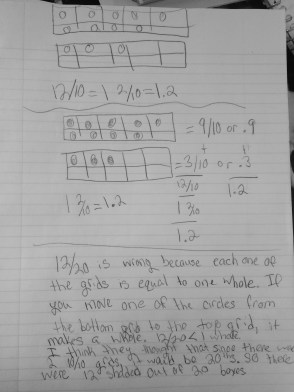 12/10 = 1 2/10 = 1.2
= 9/10 or .9
+ +
= 3/10 or .3
12/10 1.2
1 2/10 = 1.2
1 2/10
1.2
12/20 is wrong because each one of
the grids is equal to one whole. If
you move one of the circles from
the bottom grid to the top grid, it
makes a whole. 12/20 < 1 whole.
I think they thought that since there were
2 10/10 grids it would be 20's. So there
were 12 shaded out of 20 boxes